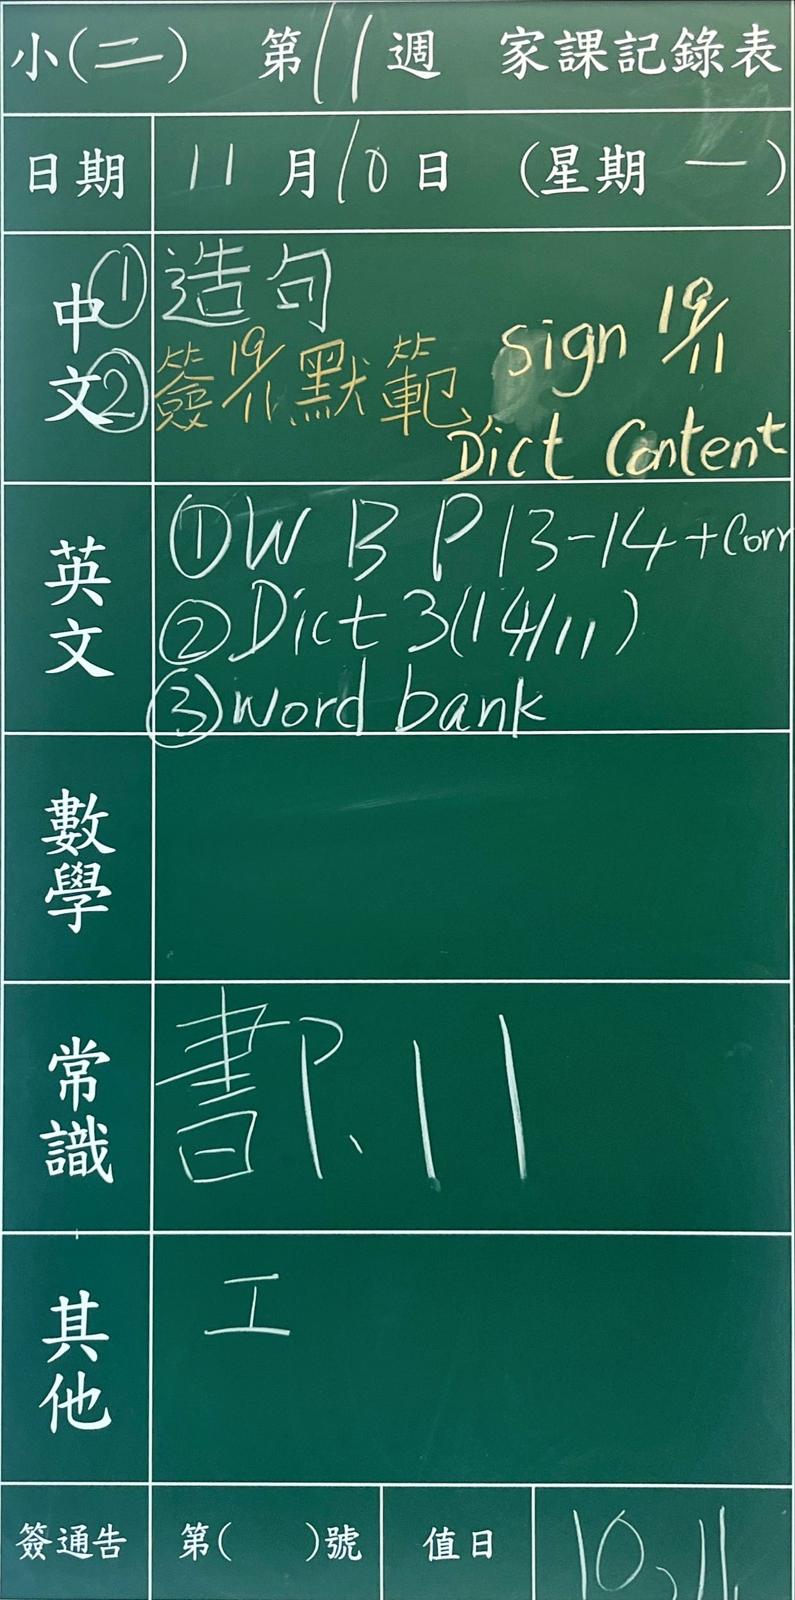 小(二) 第11週 家課記錄表
日期 11月10日 (星期一)
中文
①造句
②簽19/11默範
sign 19/11
Dict Content
英文
①W B P 13-14 + Corr
②Dict 3(14/11)
③word bank
數學
常識
書P.11
其他
工
簽通告 第( )號 值日 10,11